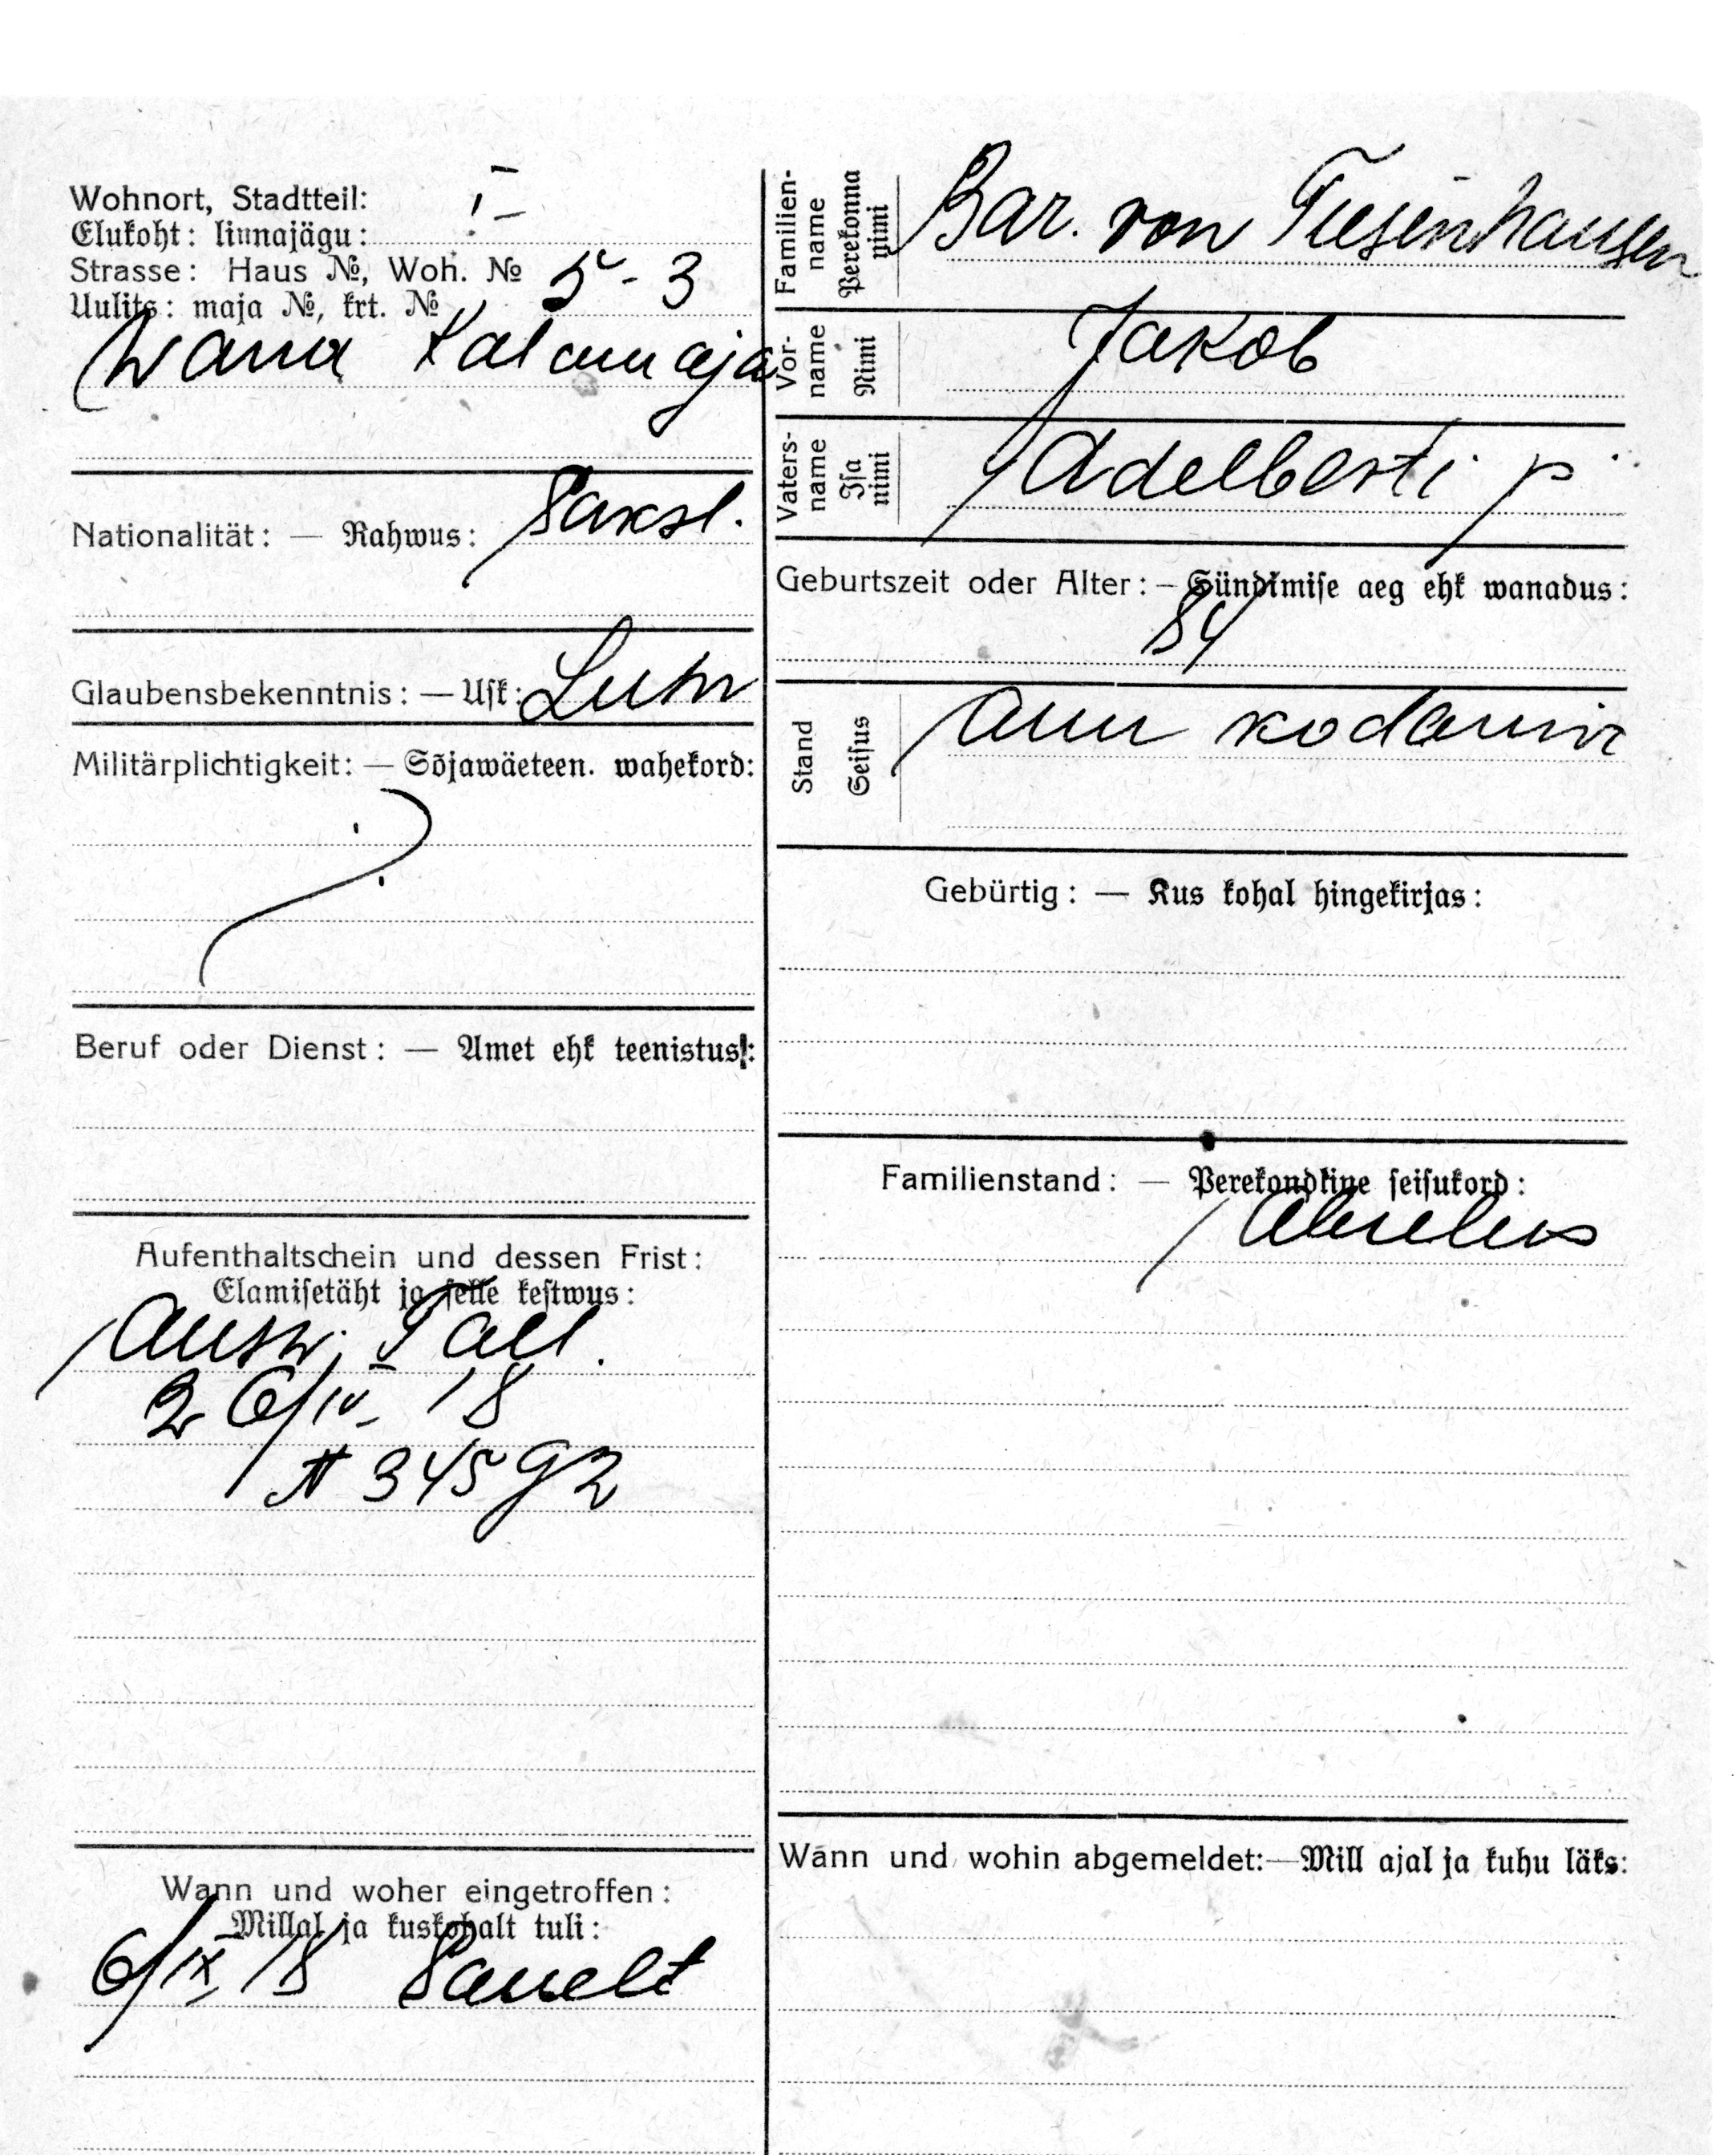 Wohnort, Stadtteil: I
Elukoht: linnajägu:
Strasse: Haus №, Woh. № 5-3
Uulits: maja №, krt. №
Wana Kalamaja
Nationalität: — Rahwus: Saksl.
Glaubensbekenntnis: — Usk: Luth
Militärplichtigkeit: — Sõjawäeteen. wahekord:
Beruf oder Dienst: — Amet ehk teenistus:
Aufenthaltschein und dessen Frist:
Elamisetäht ja selle kestwus:
Ausw. Tall.
26/IV 18
№ 34592
Wann und woher eingetroffen:
Millal ja kuskohalt tuli:
6/IX 18
Familien-
name
Perekonna
nimi
Bar. von Tiesenhausen
Vor-
name
Nimi
Jakob
Vaters-
name
Isa
nimi
Adelberti p.
Geburtszeit oder Alter: — Sündimise aeg ehk wanadus:
84
Stand
Seisus
Auu kodanik
Gebürtig: — Kus kohal hingekirjas:
Familienstand: — Perekondline seisukord:
Abielus
Wann und wohin abgemeldet: — Mill ajal ja kuhu läks: